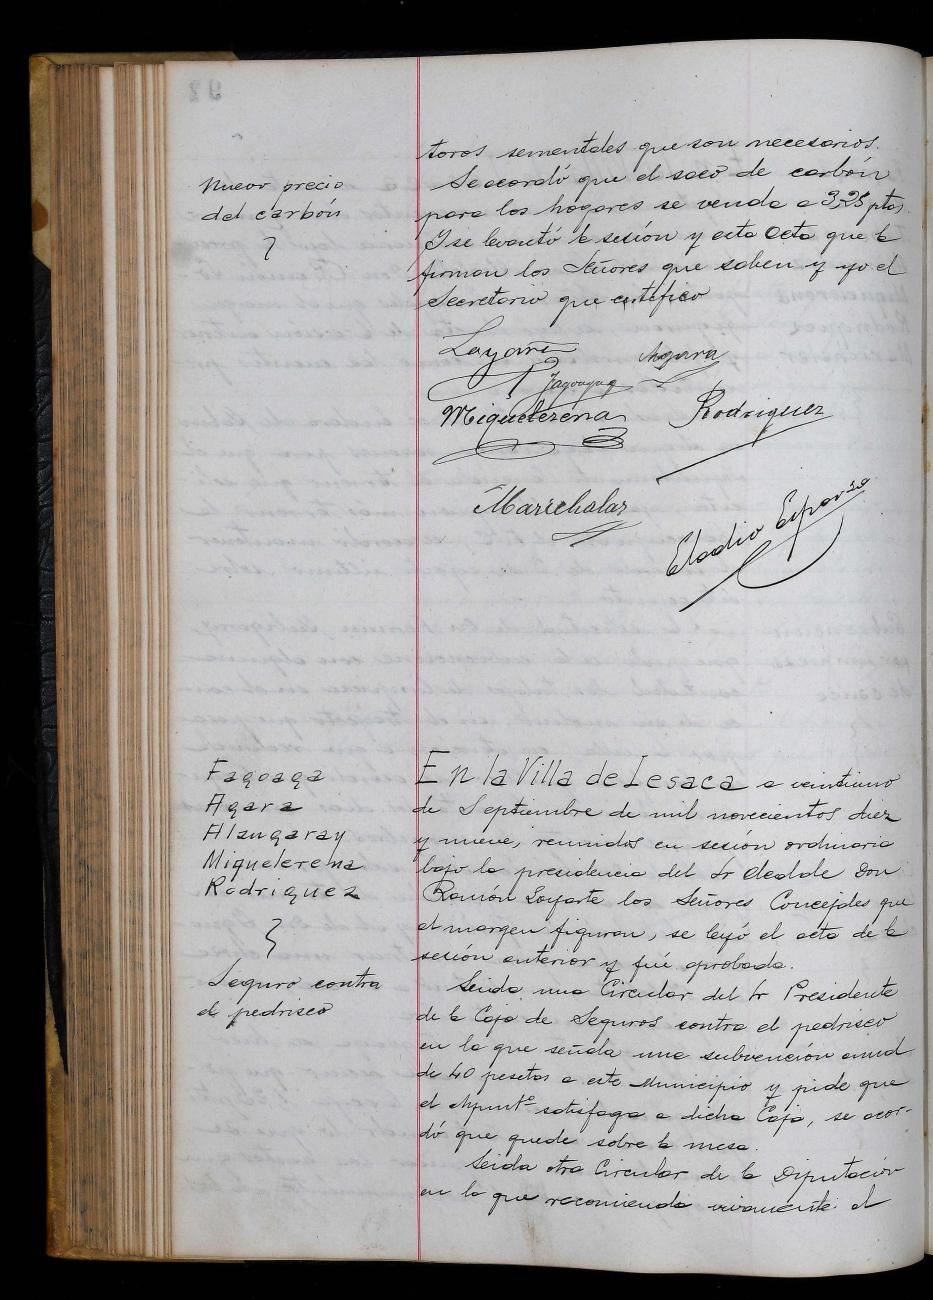 toros sementales que son necesarios.
Nuevo precio
del carbón
Se acordó que el saco de carbón
para los hogares se venda a 3,25 ptas.
Y se levantó la sesión y esta acta que la
firman los Señores que saben y yo el
Secretario que certifico
Layarte
Agara
Fagoaga
Miquelerena
Rodriguez
Marichalar
Eladio Esparza
Fagoaga
Agara
Alzugaray
Miquelerena
Rodriguez
En la Villa de Lesaca a veintiuno
de Septiembre de mil novecientos diez
y nueve, reunidos en sesión ordinaria
bajo la presidencia del Sr Alcalde Don
Ramón Layarte los Señores Concejales que
al margen figuran, se leyó el acta de la
sesión anterior y fué aprobada.
Seguro contra
el pedrisco
Leida una Circular del Sr Presidente
de la Caja de Seguros contra el pedrisco
en la que señala una subvención anual
de 40 pesetas a este Municipio y pide que
el Ayuntº satisfaga a dicha Caja, se acor-
dó que quede sobre la mesa.
Leida otra Circular de la Diputación
en la que recomienda vivamente el